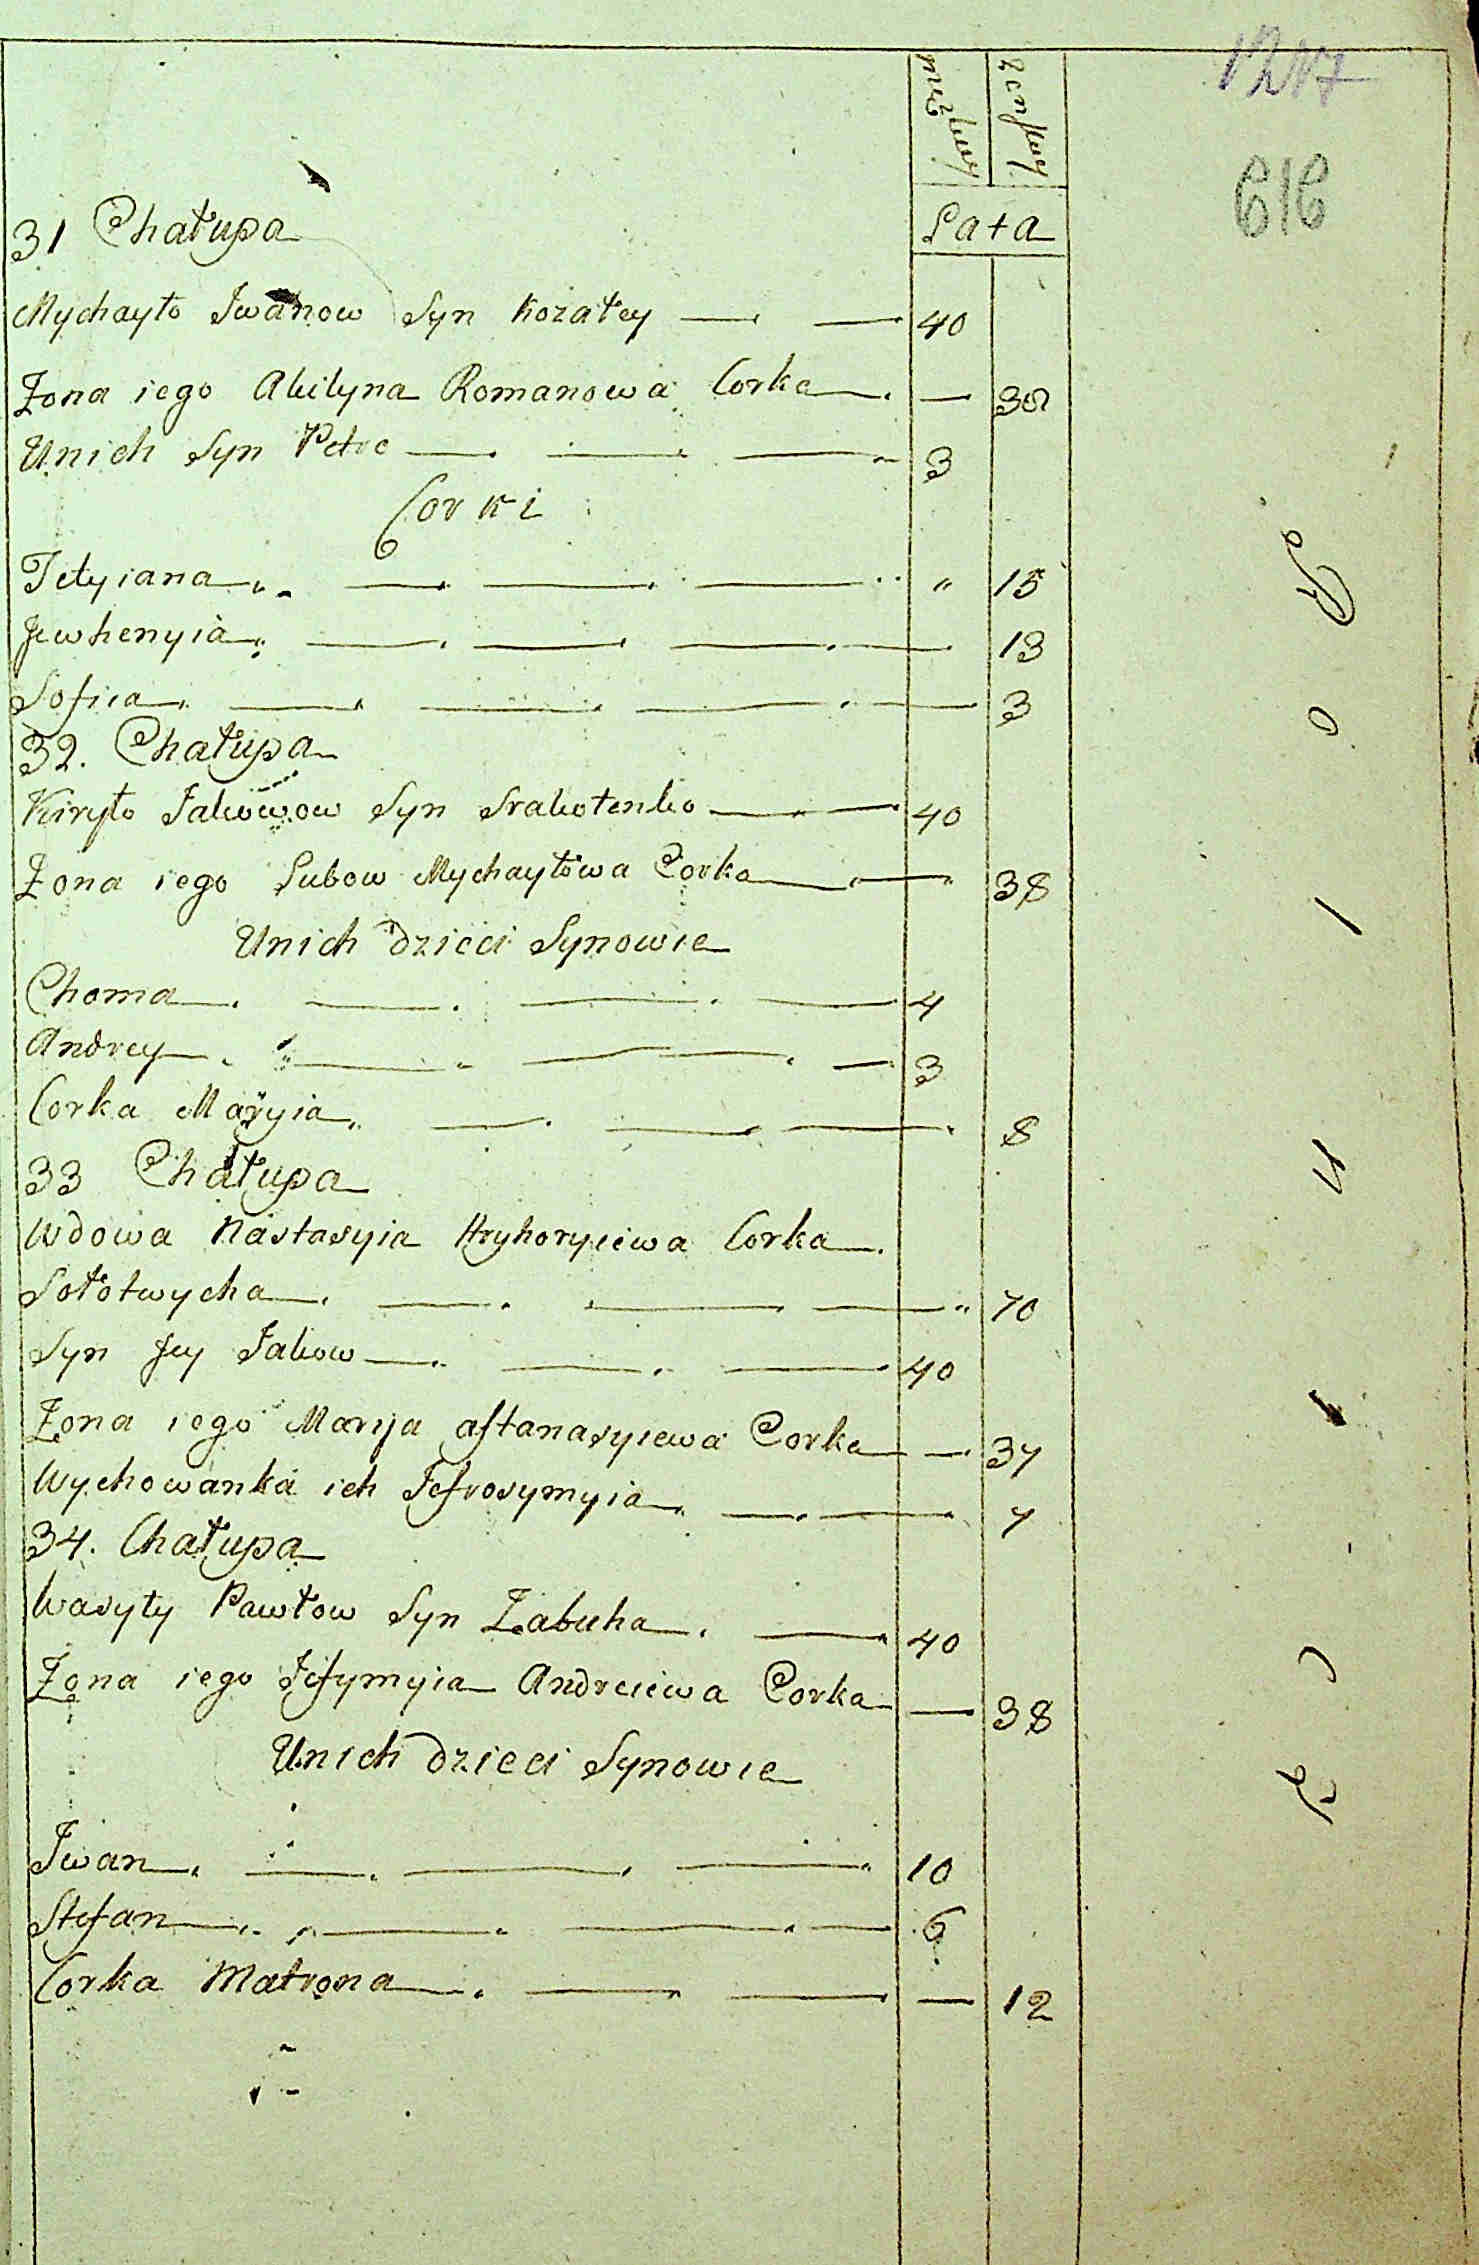 męzkey
żenskey
Lata
616
31 Chałupa
Mychayło Jwanow Syn Kozałey 40
Żona iego Akilyna Romanowa Corka 38
Unich Syn Petro 3
Corki
Tetyiana 15
Jewhenyia 13
Sofiia 3
32. Chałupa
Kiryło Jakowow Syn Srakotenko 40
Żona iego Lubow Mychayłowa Corka 38
Unich dzieci Synowie
Choma 4
Andrey 3
Corka Maryia 8
33 Chałupa
Wdowa Nastasyia Hryhoryiewa Corka
Sołotwycha 70
Syn Jey Jakow 40
Żona iego Maryja Aftanasyiewa Corka 37
Wychowanka ich Jefrosymyia 7
34. Chałupa
Wasyly Pawłow Syn Żabuha 40
Żona iego Jefymyia Andreiewa Corka 38
Unich dzieci Synowie
Jwan 10
Stefan 6
Corka Matrona 12